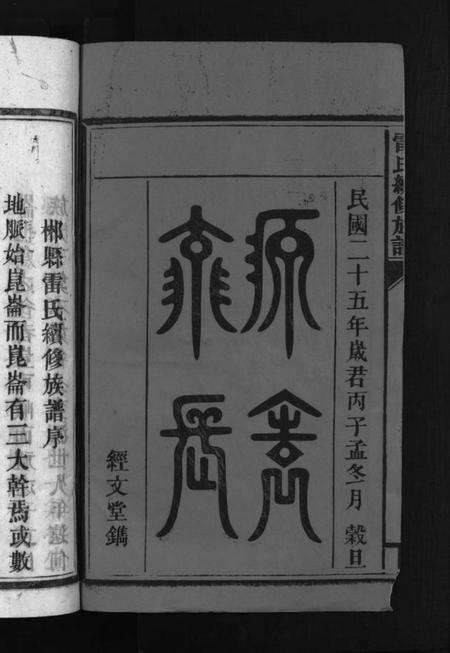 雷氏續修族譜
民國二十五年歲君丙子孟冬月 穀旦
源遠
流長
經文堂鐫
郴縣雷氏續修族譜序
地脈始崑崙而崑崙有三大幹焉或數